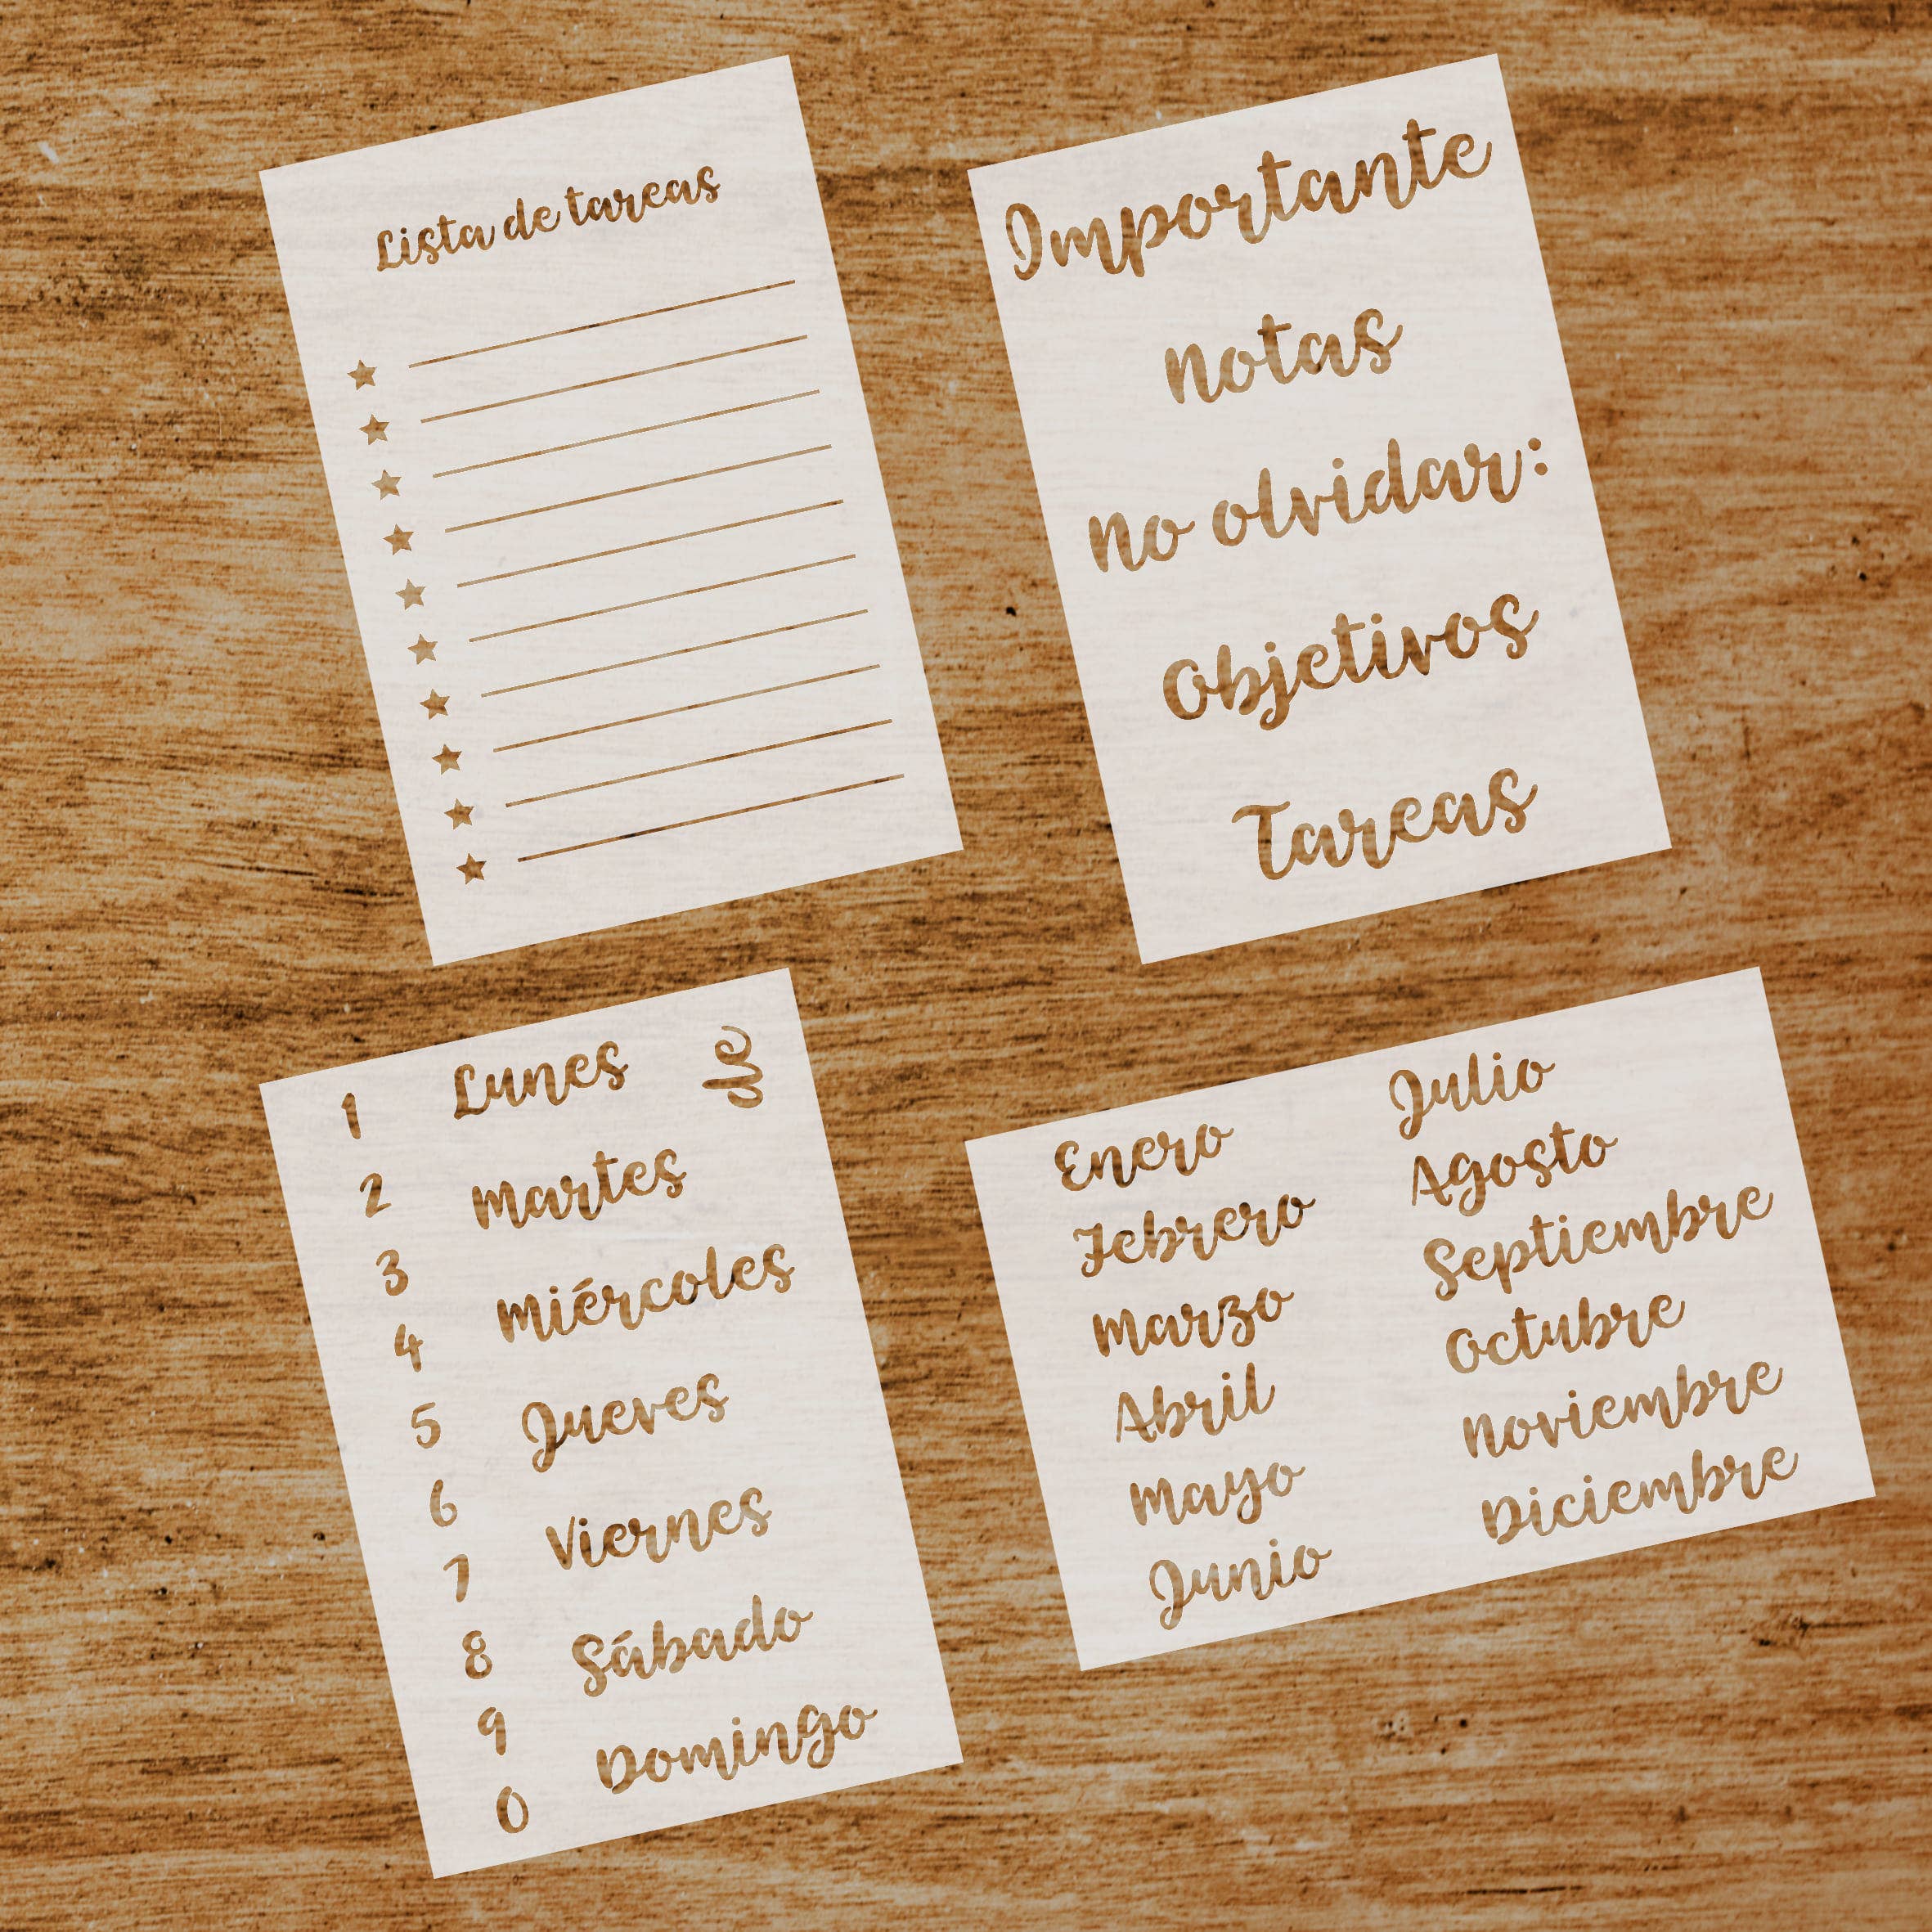 Lista de tareas
Importante
Notas
No olvidar:
Objetivos
Tareas
1
2
3
4
5
6
7
8
9
0
Lunes
Martes
Miércoles
Jueves
Viernes
Sábado
Domingo
de
Enero
Febrero
Marzo
Abril
Mayo
Junio
Julio
Agosto
Septiembre
Octubre
Noviembre
Diciembre